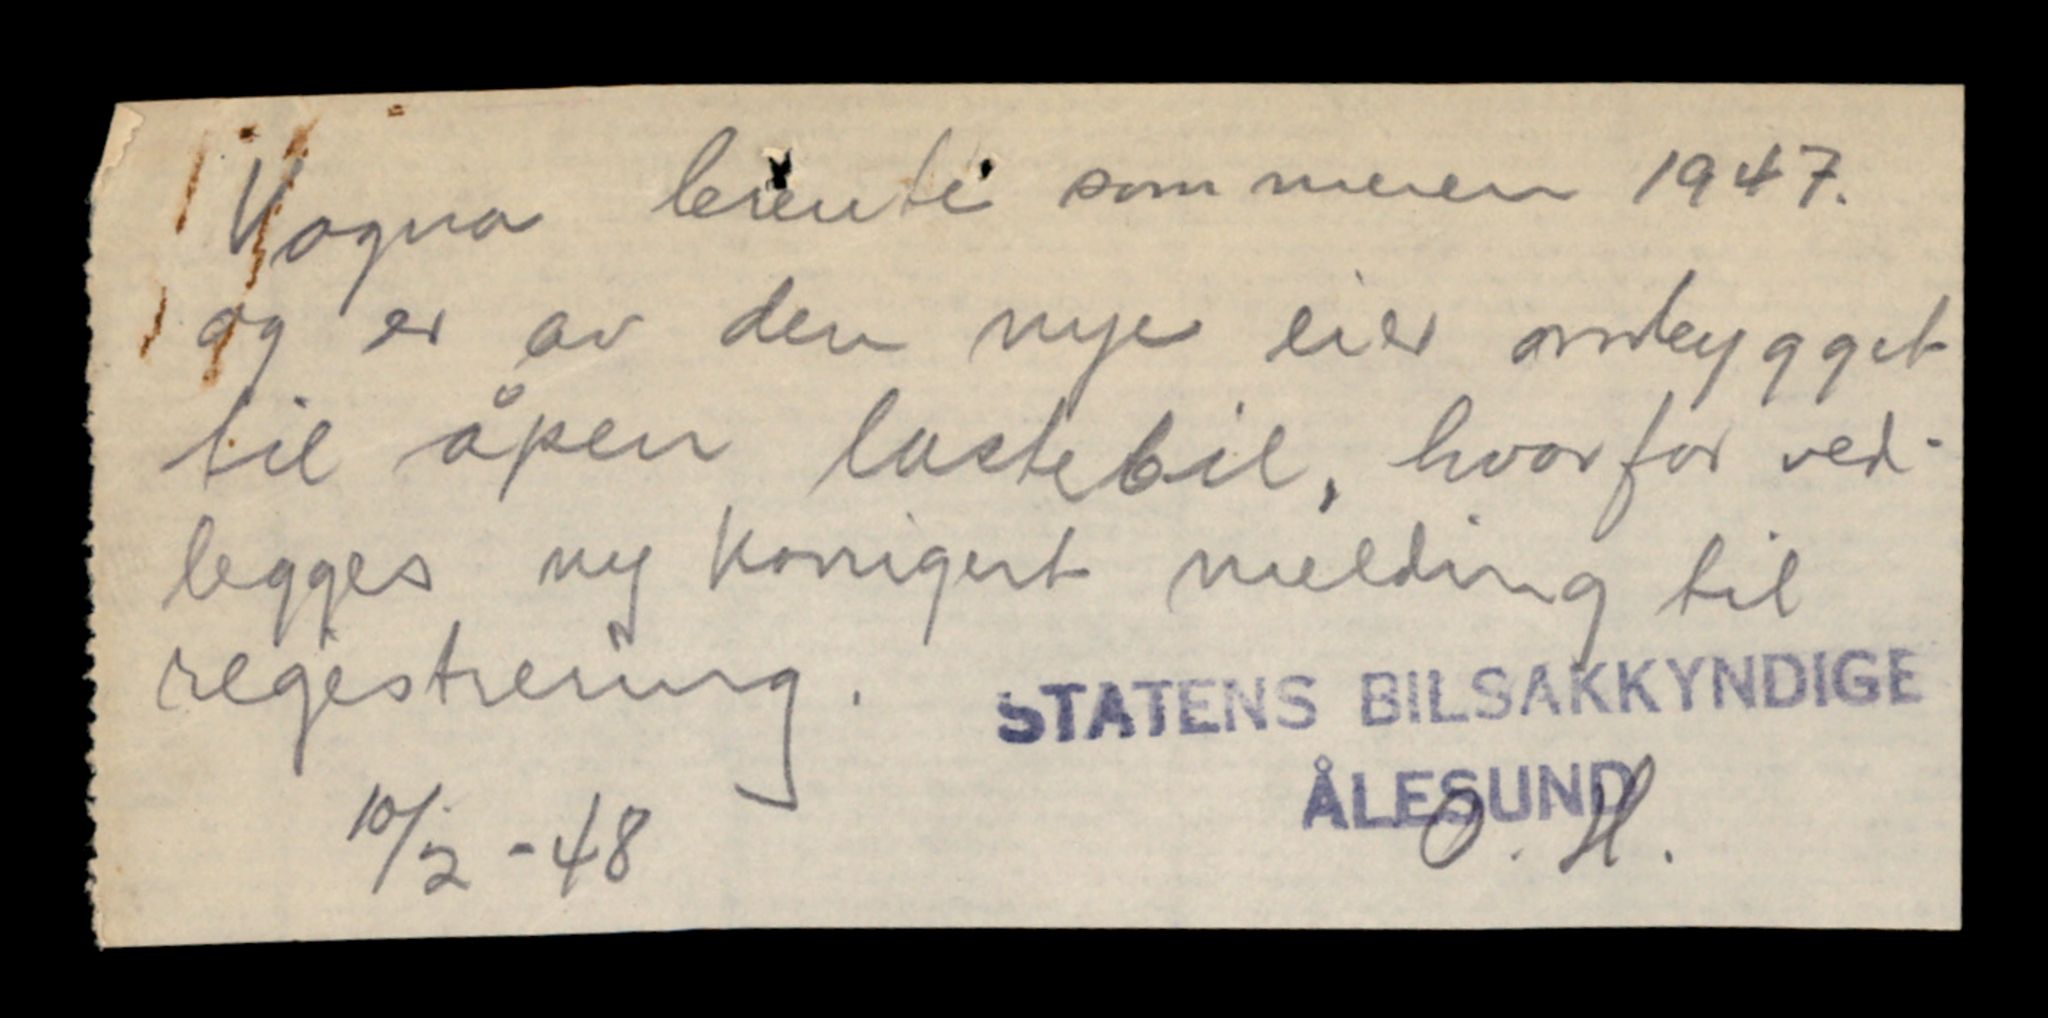 Vogna brente sommeren 1947.
og er av den nye eier ombygget
til åpen lastebil, hvorfor ved-
legges ny korrigert melding til
registrering.
STATENS BILSAKKYNDIGE
ÅLESUND
O. H.
10/2 - 48